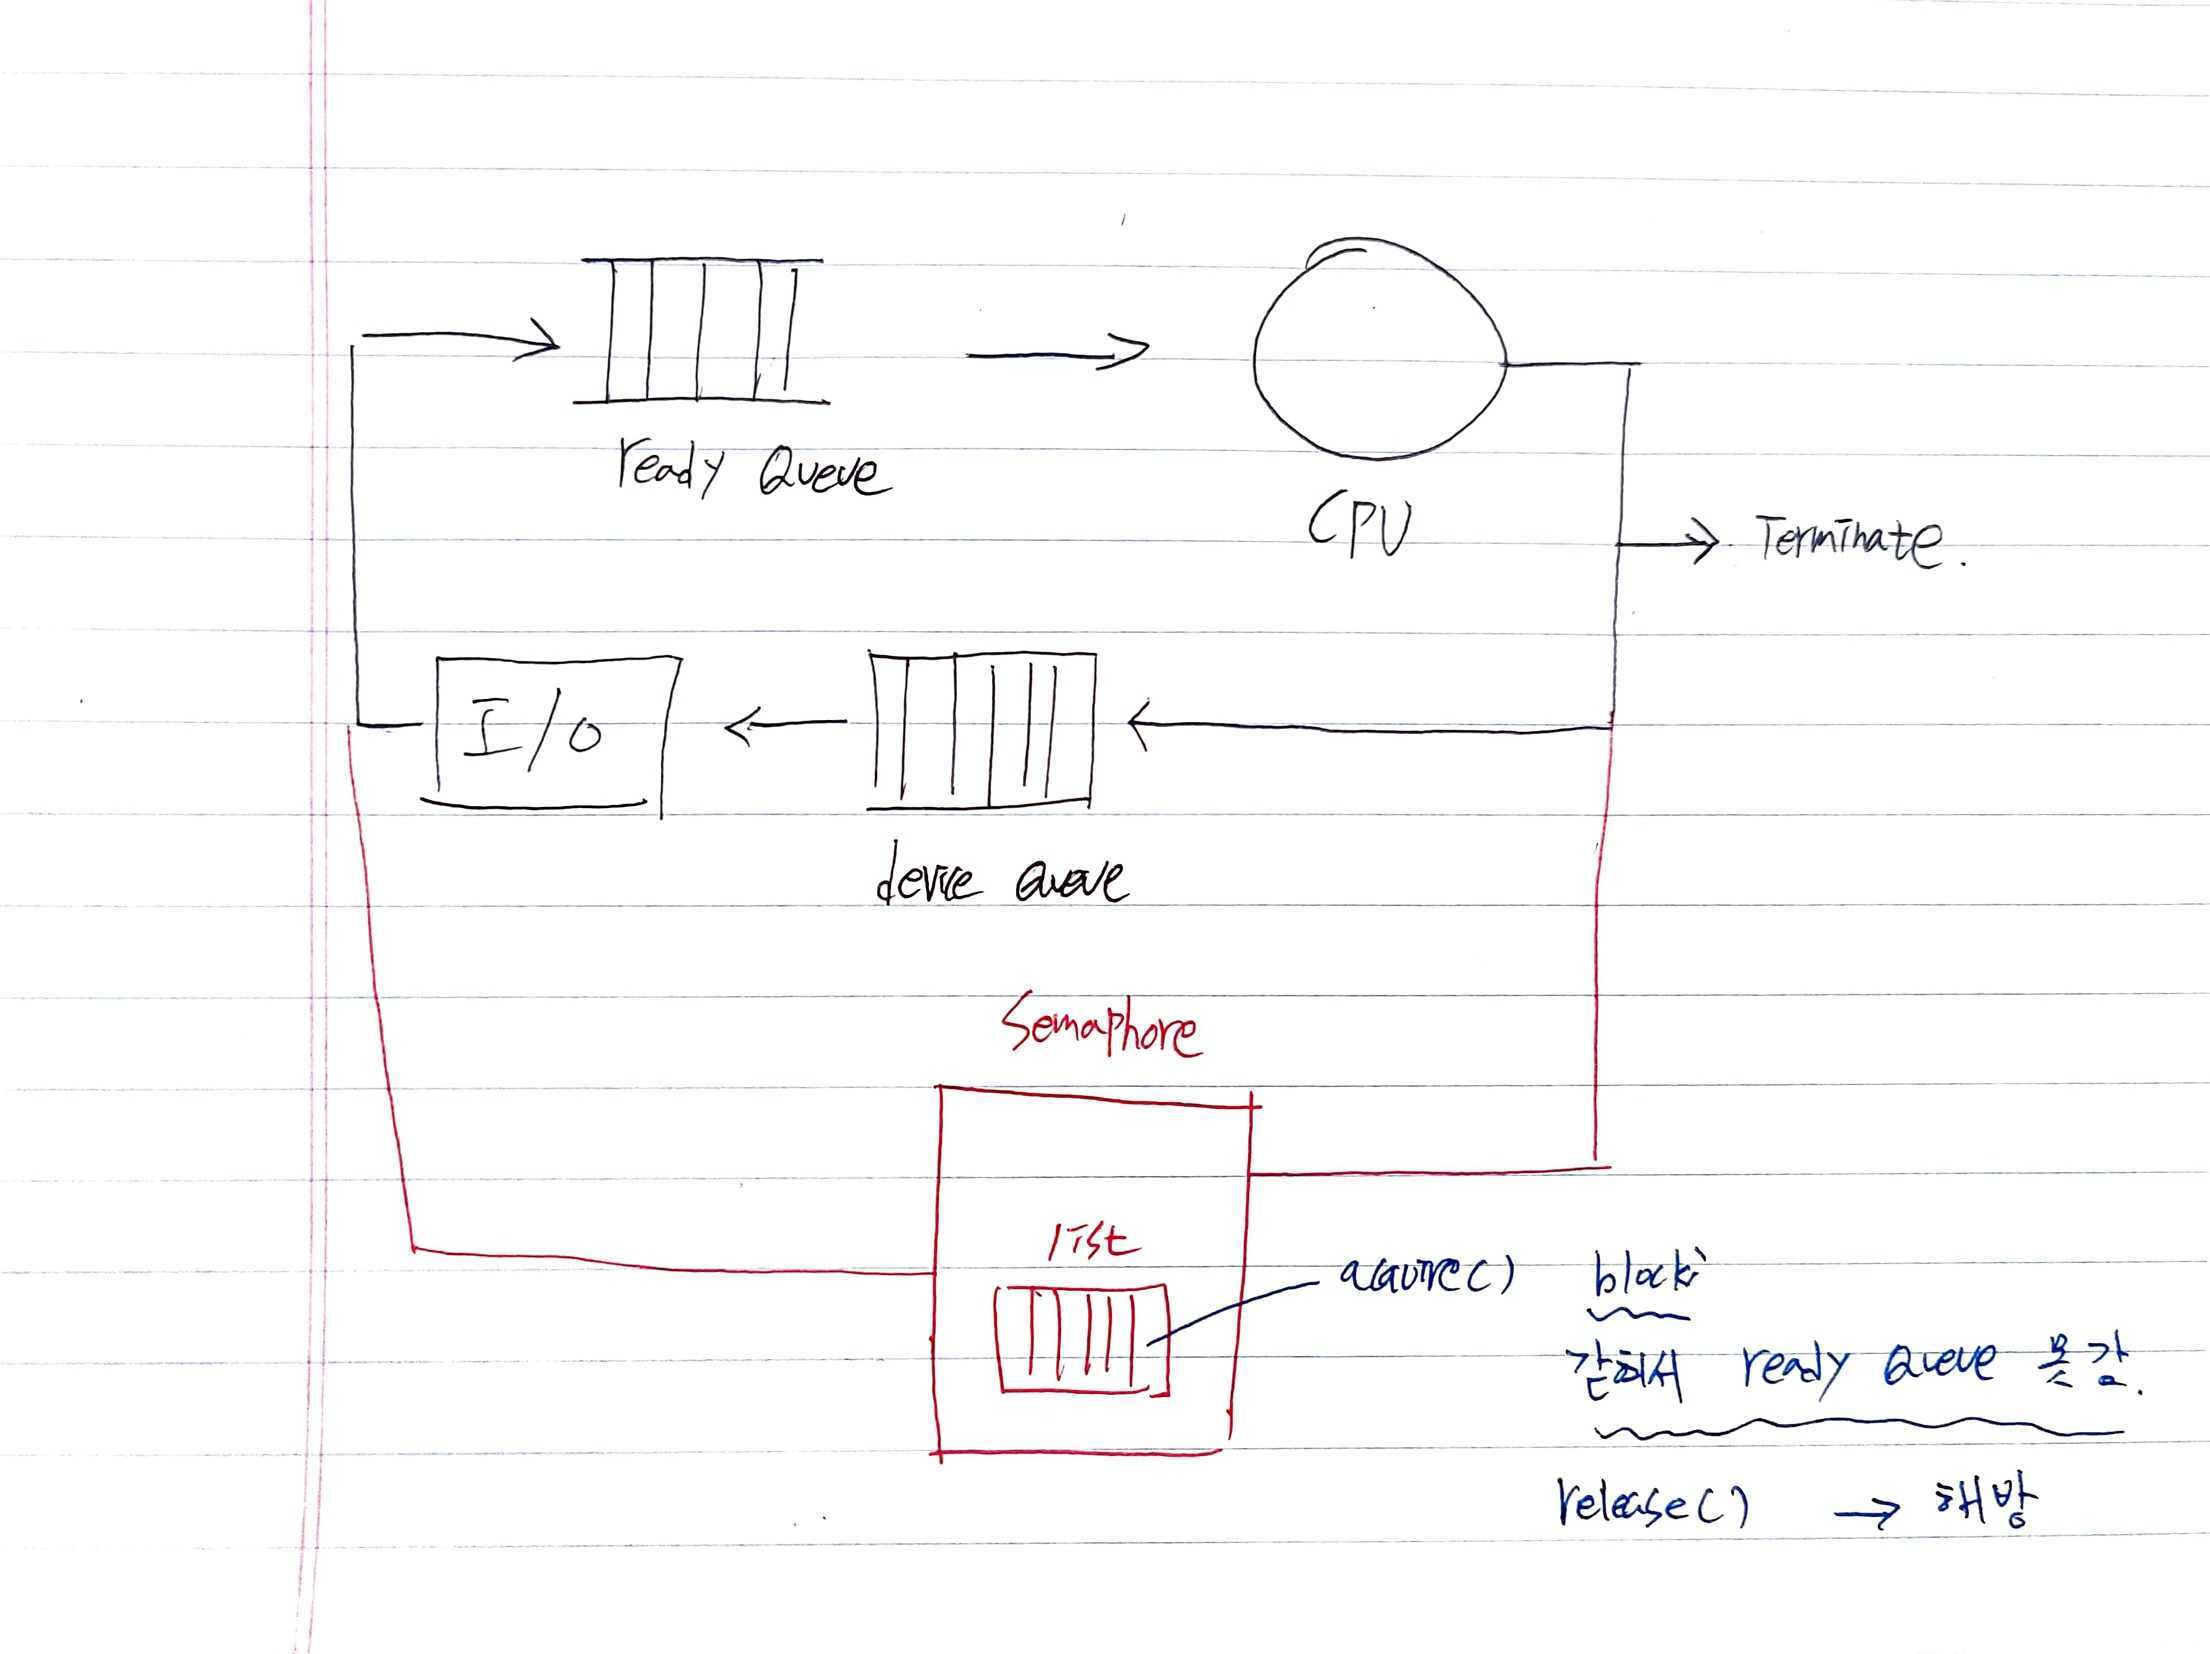 ready Queue
CPU
Terminate.
I/O
device Queue
Semaphore
list
acquire() block
갇혀서 ready Queue 못감.
release() → 해방